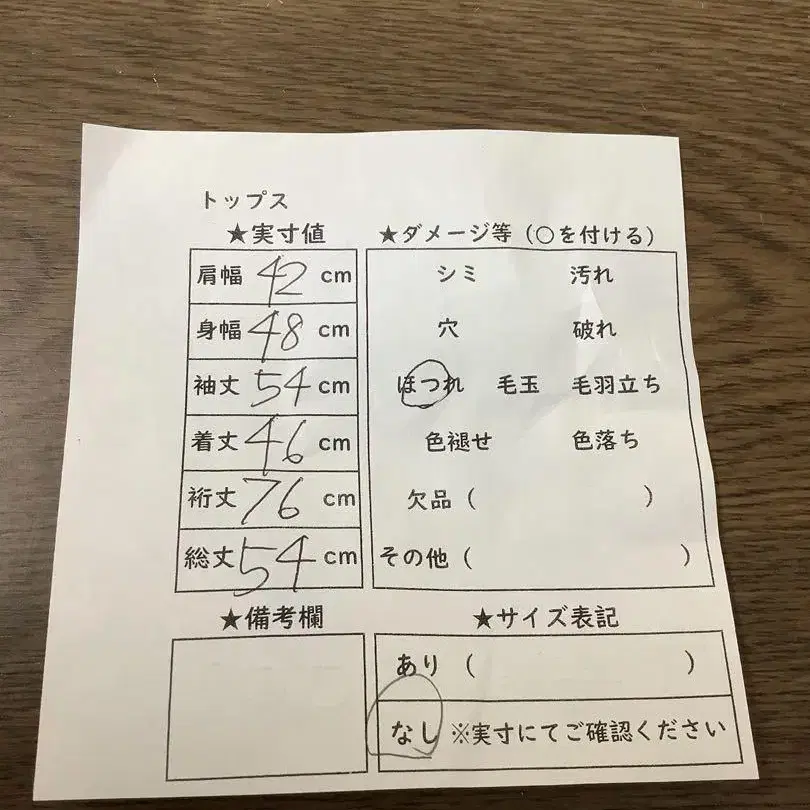 トップス
★実寸値
肩幅 42 cm
身幅 48 cm
袖丈 54 cm
着丈 46 cm
裄丈 76 cm
総丈 54 cm
★備考欄
★ダメージ等（○を付ける）
シミ 汚れ
穴 破れ
ほつれ 毛玉 毛羽立ち
色褪せ 色落ち
欠品（ ）
その他（ ）
★サイズ表記
あり（ ）
なし ※実寸にてご確認ください